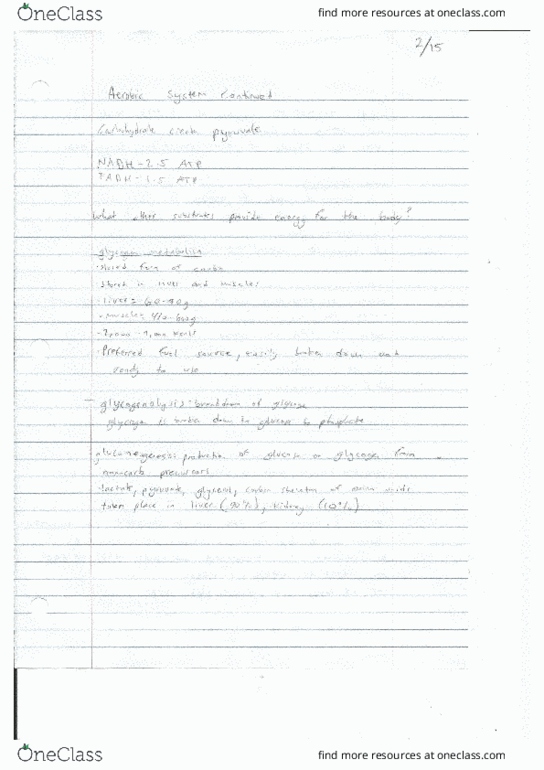 OneClass
find more resources at oneclass.com
2/15
Aerobic System Continued
Carbohydrate create pyruvate
NADH - 2.5 ATP
FADH - 1.5 ATP
what other substrates provide energy for the body?
glycogen metabolism
· stored form of carbs
stored in liver and muscles
· liver = 60-90g
· muscles
· Preferred fuel source, easily broken down and
ready to use
glycogenolysis: breakdown of
glycogen is broken down to glucose 6 phosphate
gluconeogenesis: production of glucose or glycogen from
non-carb precursors
· lactate, pyruvate, glycerol, carbon skeleton of amino acids
taken place in liver (90%), kidney (10%)
OneClass
find more resources at oneclass.com